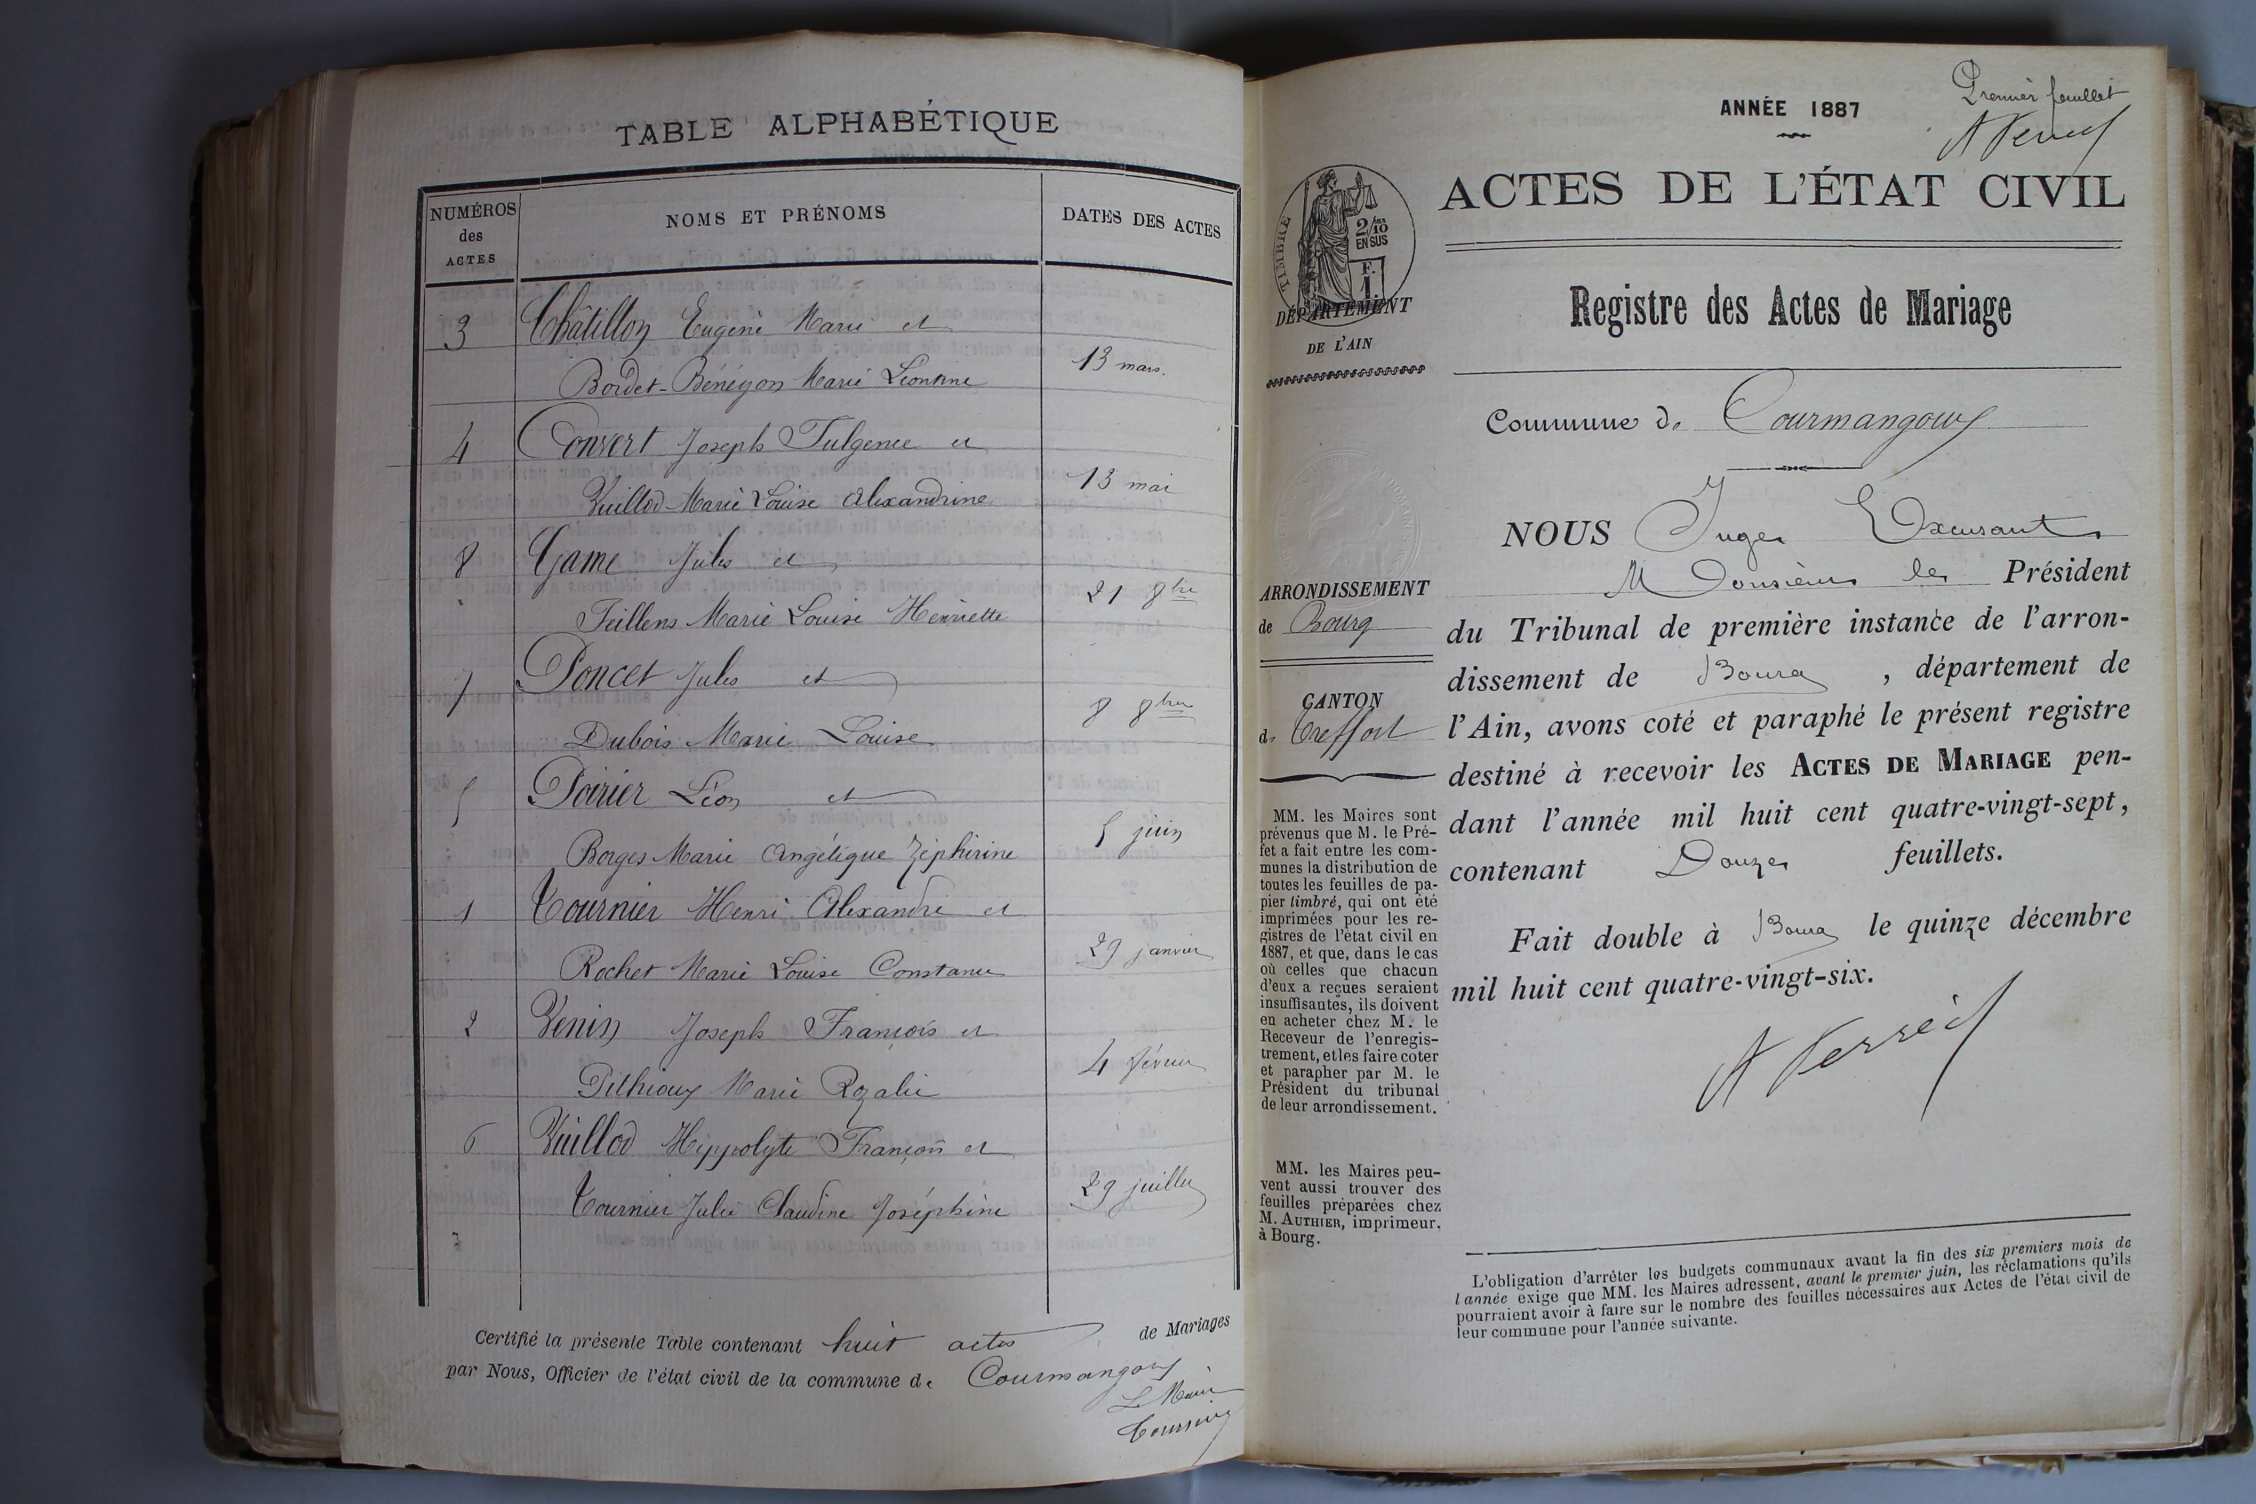 TABLE ALPHABÉTIQUE
NUMÉROS
des
ACTES
NOMS ET PRÉNOMS
DATES DES ACTES
3 Châtillon Eugène Marie et
Bordet-Bénézon Marie Léontine 13 mars.
4 Convert Joseph Fulgence et
Vuillod Marie Louise Alexandrine 13 mai
8 Game Jules et
Feillens Marie Louise Henriette 21 8bre
7 Poncet Jules et
Dubois Marie Louise 8 8bre
5 Poirier Léon et
Borges Marie Angélique Zéphirine 5 juin
1 Tournier Henri Alexandre et
Rochet Marie Louise Constance 29 janvier
2 Venin Joseph François et
Pithioux Marie Rozalie 4 février
6 Vuillod Hippolyte François et
Tournier Julie Claudine Joséphine 29 juillet
Certifié la présente Table contenant huit actes de Mariages
par Nous, Officier de l'état civil de la commune de Courmangoux
Le Maire
Premier feuillet
ANNÉE 1887
ACTES DE L'ÉTAT CIVIL
TIMBRE
2/10
EN SUS
F.
1
DÉPARTEMENT
DE L'AIN
Registre des Actes de Mariage
Commune de Courmangoux
NOUS Juge Excusant
Monsieur le Président
du Tribunal de première instance de l'arron-
dissement de Bourg, département de
l'Ain, avons coté et paraphé le présent registre
destiné à recevoir les ACTES DE MARIAGE pen-
dant l'année mil huit cent quatre-vingt-sept,
contenant Douze feuillets.
Fait double à Bourg le quinze décembre
mil huit cent quatre-vingt-six.
ARRONDISSEMENT
de Bourg
CANTON
de Treffort
MM. les Maires sont
prévenus que M. le Pré-
fet a fait entre les com-
munes la distribution de
toutes les feuilles de pa-
pier timbré, qui ont été
imprimées pour les re-
gistres de l'état civil en
1887, et que, dans le cas
où celles que chacun
d'eux a reçues seraient
insuffisantes, ils doivent
en acheter chez M. le
Receveur de l'enregis-
trement, et les faire coter
et parapher par M. le
Président du tribunal
de leur arrondissement.
MM. les Maires peu-
vent aussi trouver des
feuilles préparées chez
M. AUTHIER, imprimeur,
à Bourg.
L'obligation d'arrêter les budgets communaux avant la fin des six premiers mois de
l'année exige que MM. les Maires adressent, avant le premier juin, les réclamations qu'ils
pourraient avoir à faire sur le nombre des feuilles nécessaires aux Actes de l'état civil de
leur commune pour l'année suivante.